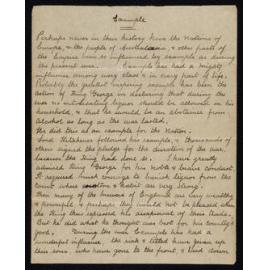 Example
Perhaps never in their history have the Nations of
Europe, & the people of Australasia & other parts of
the Empire been so influenced by example as during
the present war. Example has had a mighty
influence among every class & in every part of life.
Probably the greatest inspiring example has been the
action of King George in declaring that during the
war no intoxicating liquor should be allowed in his
household, & that he would be an abstainer from
Alcohol as long as the war lasted.
He did this as an example for the Nation.
Lord Kitchener followed his example, & thousands of
others signed the pledge for the duration of the war,
because the King had done it. I have greatly
admired King George for his noble & brave conduct
It required much courage to banish liquor from the
Court where custom & habit are very strong.
Then many of the brewers of England are very wealthy
& powerful, & perhaps they would not be pleased when
the King thus released his displeasure of their trade.
But he did what he thought was best for his Country's
good. During the war Example has had a
wonderful influence. The rich & titled have given up
their sons, who have gone to the front, & lived down